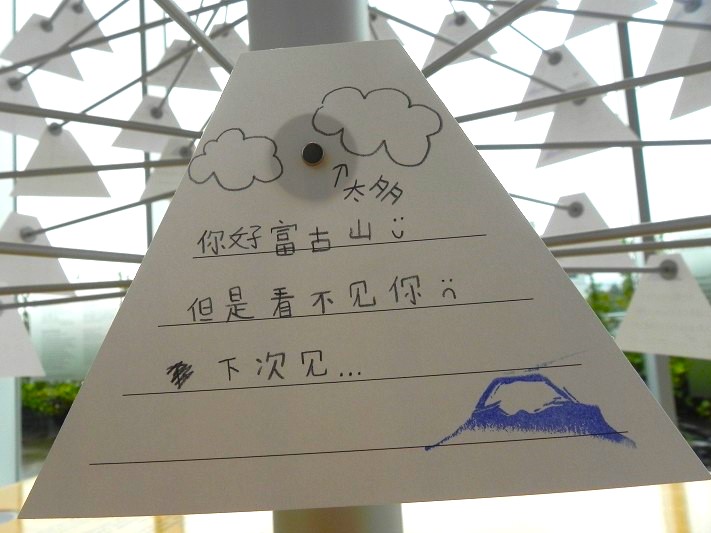 太多
你好富古山
但是看不见你
下次见...